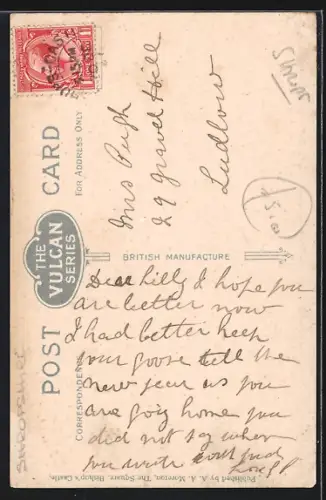 POST CARD
THE
VULCAN
SERIES
FOR ADDRESS ONLY
BRITISH MANUFACTURE
CORRESPONDENCE
Mrs Pugh
29 Gravel Hill
Ludlow
Dear Lilly I hope you
are better now
I had better keep
your goose till the
new year as you
are goig home you
did not say when
you write
Published by A. A. Moretan, The Square, Bishop's Castle.
SHROPSHIRE